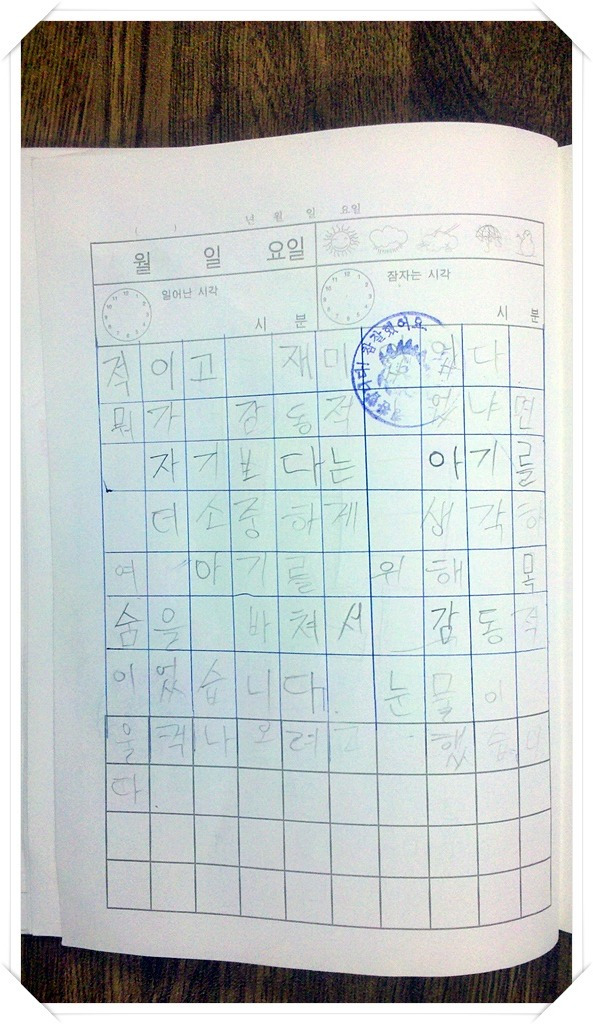 ( ) 년 월 일 요일
월 일 요일
일어난 시각 잠자는 시각
시 분 시 분
참 잘했어요
적이고 재미 있다
뭐가 감동적 었냐면
자기보다는 아기를
더 소중하게 생각하
여 아기를 위해 목
숨을 바쳐서 감동적
이었습니다. 눈물이
울컥나오려고 했습니
다.